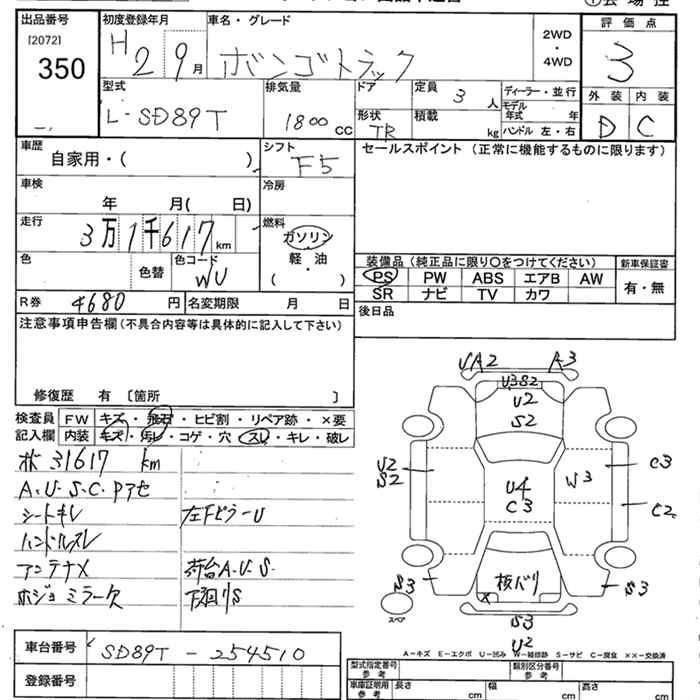 出品番号
[2072]
350
初度登録年月
H 2 9月
車名・グレード
ボンゴトラック
2WD
・
4WD
評価点
3
外装 内装
D C
型式
L-SD89T
排気量
1800 CC
ドア
定員 3 人
ディーラー・並行
モデル
年式 年
形状
TR
積載 kg
ハンドル 左・右
車歴
自家用・( )
シフト
F5
セールスポイント (正常に機能するものに限ります)
車検
年 月( 日)
冷房
走行
3万1千617 km
燃料
ガソリン
軽・油
( )
色
色替
色コード
WU
装備品 (純正品に限り〇をつけてください)
新車保証書
PS PW ABS エアB AW
有・無
SR ナビ TV カワ
R券 4680 円
名変期限 月 日
後日品
注意事項申告欄 (不具合内容等は具体的に記入して下さい)
修復歴 有 〔箇所 〕
検査員 FW キズ・飛石・ヒビ割・リペア跡・×要
記入欄 内装 キズ・汚レ・コゲ・穴・スレ・キレ・破レ
31617 km
A.U.S.C.Pアセ
シートキレ
左Fピラー U
ハンドルスレ
アンテナメ
荷台A.U.S.
ホジョミラー欠
下回リS
UA2 A3
U3S2
U2
S2
U2
S2
U4
C3
W3
C3
C2
S3
核バリ
X
S3
S3
U2
スペア
A-キズ E-エクボ U-凹み W-補修跡 S-サビ C-腐食 ××-交換済
車台番号 SD89T-254510
登録番号
型式指定番号
参考
類別区分番号
参考
車庫証明用
参考
長さ cm
幅 cm
高さ cm